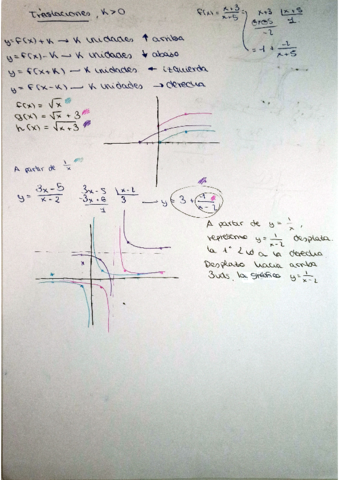 Traslaciones, K>0
y=f(x)+K → K unidades ↑ arriba
y=f(x)-K → K unidades ↓ abajo
y=f(x+K) → K unidades ← izquierda
y=f(x-K) → K unidades → derecha
f(x)=√x
g(x)=√x+3
h(x)=√x+3
f(x)=x+3/x+5
x+3 |x+5
-2 1
=-1+-2/x+5
A partir de 1/x
y=3x-5/x-2
3x-5 |x-2
-3x+6 3
1
y=3+1/x-2
A partir de y=1/x,
represento y=1/x-2 desplaza
a la derecha
Desplazo hacia arriba
3uds la gráfica y=1/x-2